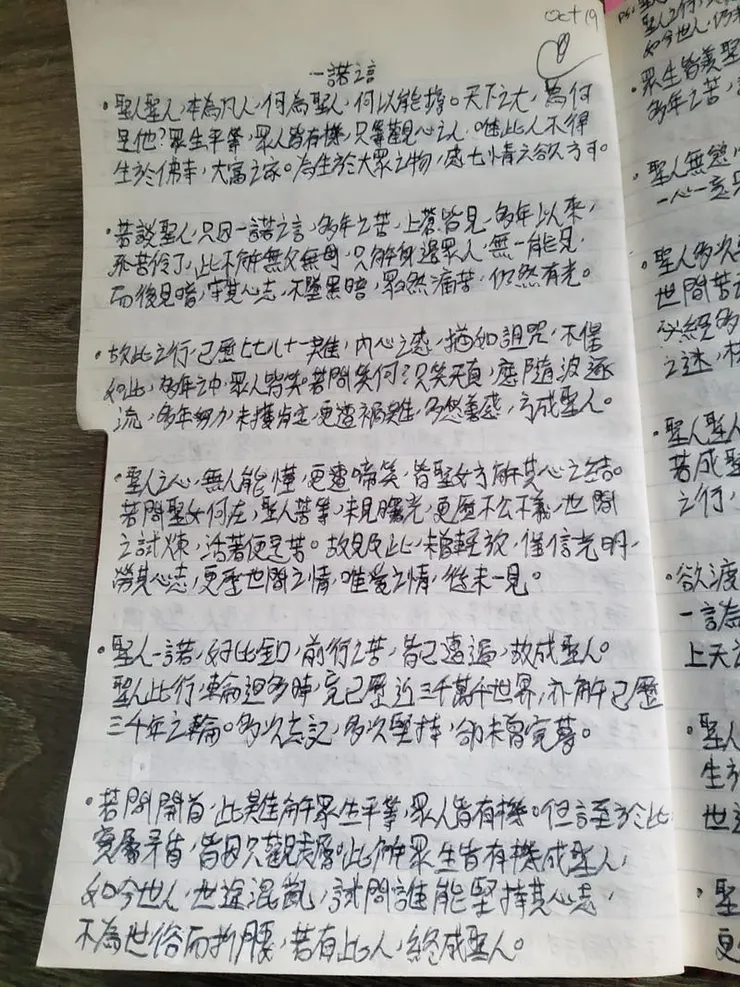 Oct 19
一諾之言
•聖人聖人,本為凡人,何為聖人,何以能撐。天下之大,為何
是他?眾生平等,眾人皆有機,只等觀心之人。唯此人不得
生於佛寺,大富之家。為生於大眾之物,感七情六欲方可。
•若談聖人,只因一諾之言,多年之苦,上蒼皆見,多年以來,
孤苦伶仃,此不解無父無母,只解身邊眾人,無一能見,
而後見暗,守其心志,不墮黑暗,眾然痛苦,仍然有光。
•故此之行,已歷七七八十一難,內心之感,猶如詛咒,不僅
如此,多年之中,眾人皆笑。若問笑何?只笑天真,應隨波逐
流,多年努力,未獲肯定,更遭禍難,多然善感,方成聖人。
•聖人之心,無人能懂,更遭啼笑,皆聖女方解其心之結。
若問聖女何在,聖人苦等,未見曙光,更歷不公不義,世間
之試煉,活著便是苦。故見及此,未曾輕放,僅信光明,
勞其心志,更歷世間之情,唯愛之情,從未一見。
•聖人一諾,好比金口,前行之苦,皆已遭遍,故成聖人。
聖人此行,輪迴多時,竟已歷近三千萬千世界,亦解已歷
三千年之輪。多次忘記,多次堅持,卻未曾完尋。
•若問開首,此難解眾生平等,眾人皆有機。但言至於此,
實屬矛盾,皆因只觀表層。此解眾生皆有機成聖人,
如今世人,世途混亂,試問誰能堅持其心志,
不為世俗而折腰,若有此人,終成聖人。
眾生皆
多年之苦,
聖人無慾
一心一意
聖人多次
世間苦
必經多
之迷,
聖人聖人
若成聖
之行,
欲渡
一言為
上天
聖人
生於
世
聖
更